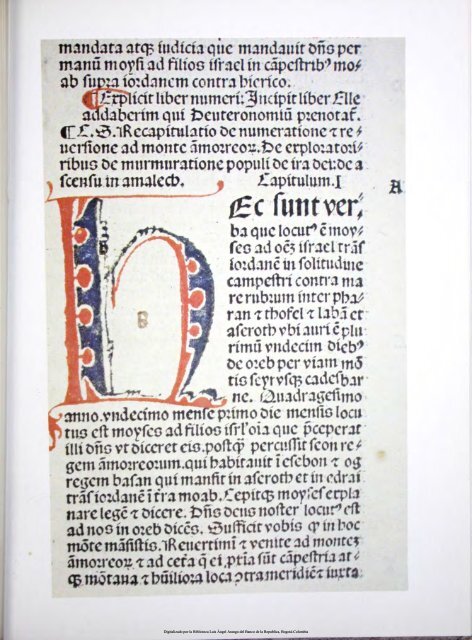 mandata atqꝫ iudicia que mandauit dñs per
manũ moysi ad filios israel in cãpestribꝰ mo⸗
ab supra iordanem contra hierico.
¶Explicit liber numeri: Incipit liber Elle
addaberim qui Deuteronomiũ prenotat̃.
¶C.S. Recapitulatio de numeratione ⁊ re⸗
uersione ad monte ãmorreoꝝ. De exploratori⸗
ribus de murmuratione populi de ira dei: de a
scensu in amalech. Capitulum. I
A
HEc sunt ver⸗
ba que locutꝰ ẽ moy⸗
ses ad oẽs israel trãs
iordanẽ in solitudine
campestri contra ma
re rubrum inter pha⸗
ran ⁊ thofel ⁊ labã et
aseroth vbi auri ẽ plu
rimũ vndecim diebꝰ
de oreb per viam mõ
tis seyr vsqꝫ cadesbar
ne. Quadragesimo
anno. vndecimo mense primo die mensis locu
tus est moyses ad filios isrl' oĩa que p̃ceperat
illi dñs vt diceret eis. postqꝫ percussit seon re⸗
gem ãmorreorum. qui habitauit ĩ esebon ⁊ og
regem basan qui mansit in aseroth et in edrai
trãs iordanẽ ĩ tr̃a moab. Cepitqꝫ moyses expla
nare legẽ ⁊ dicere. Dñs deus noster locutꝰ est
ad nos in oreb dicẽs. Sufficit vobis ꝙ in hoc
mõte mãsistis. Reuertimĩ ⁊ venite ad montẽ
ãmorreoꝝ ⁊ ad cet̃a q̃ ei ꝓxĩa sũt cãpestria at⸗
qꝫ mõtana ⁊ hũiliora loca ꝯtra meridiẽ ⁊ iuxta
B
Digitalizado por la Biblioteca Luis Ángel Arango del Banco de la República, Bogotá-Colombia